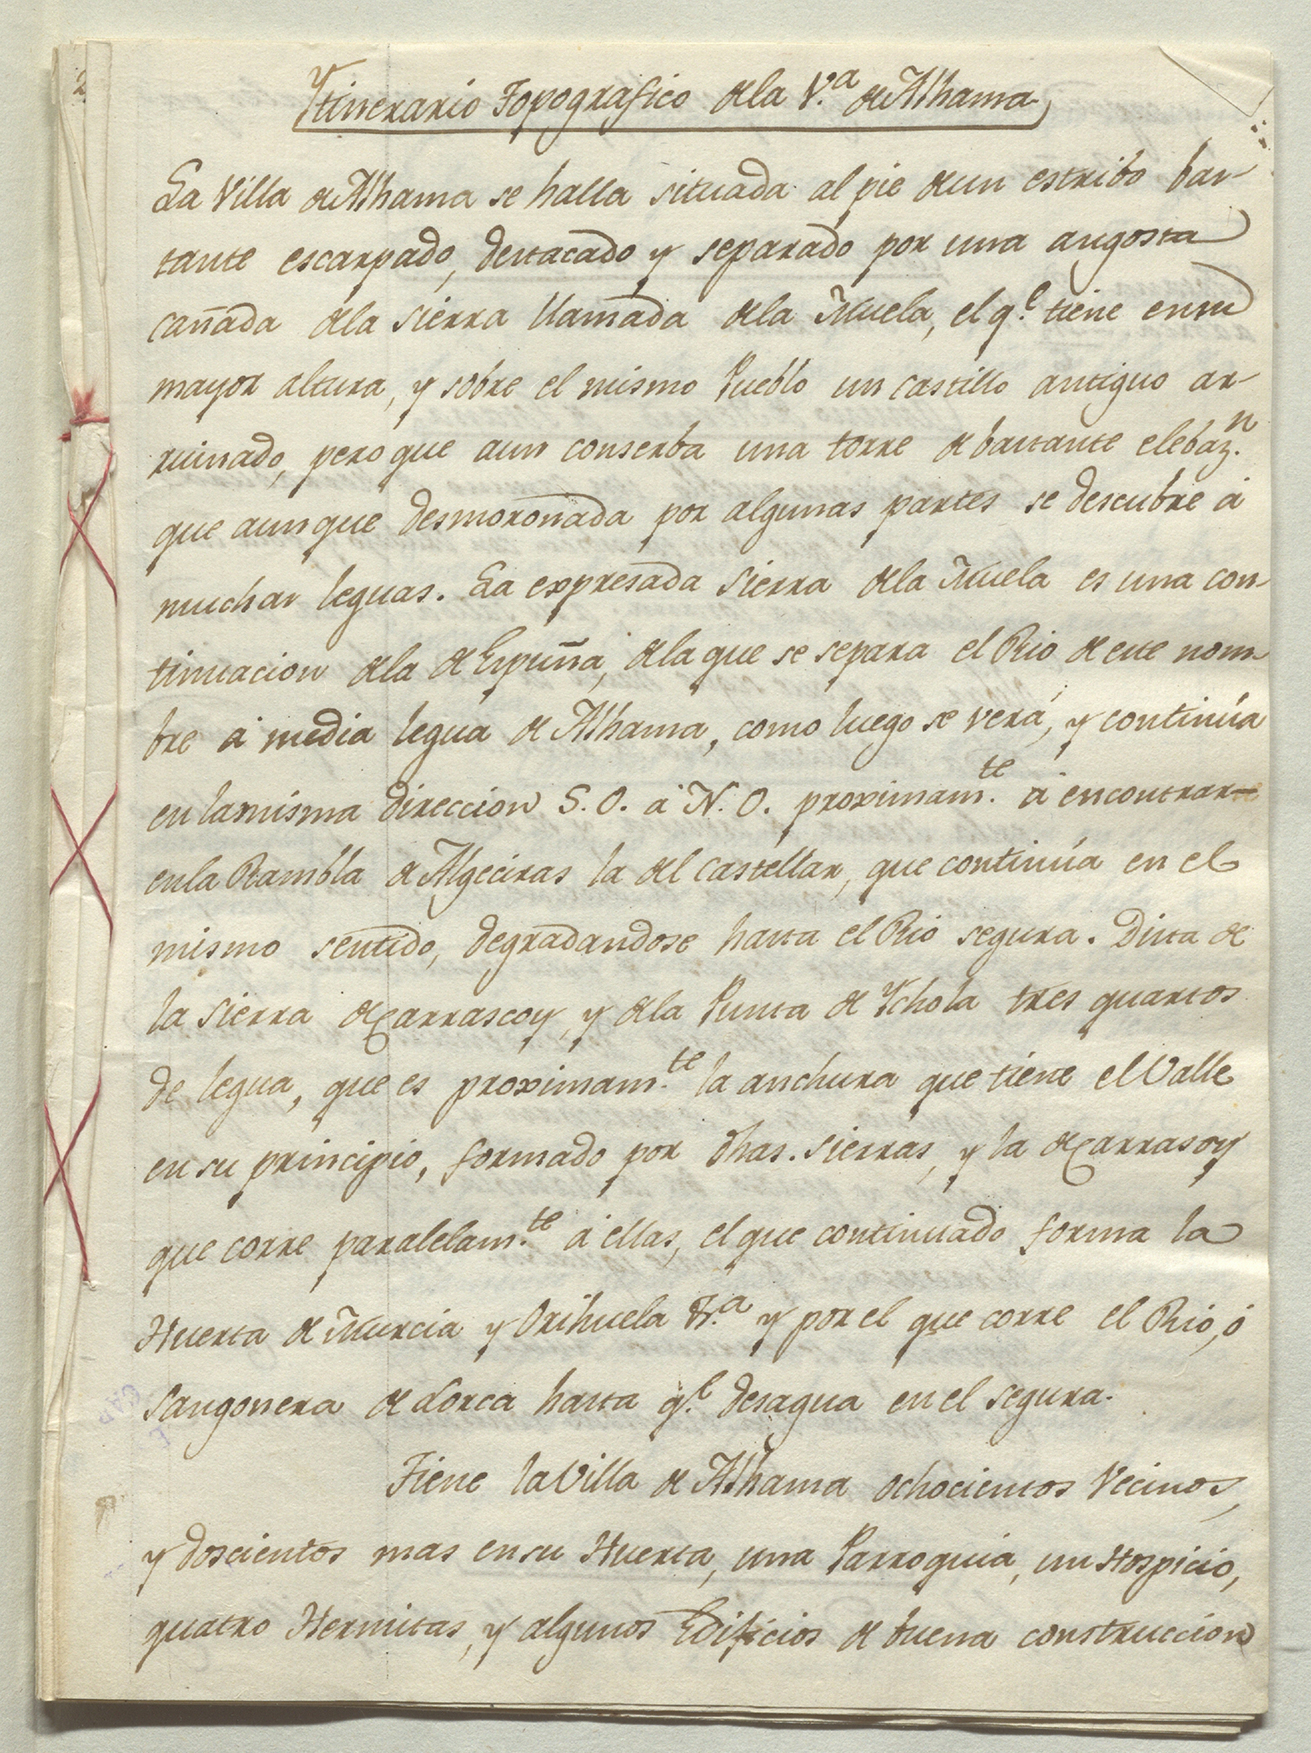 2
Ytinerario Topografico de la V.ª de Alhama
La Villa de Alhama se halla situada al pie de un estribo bas-
tante escarpado, destacado y separado por una angosta
cañada de la Sierra llamada de la Muela, el q.e tiene en su
mayor altura, y sobre el mismo Pueblo un castillo antiguo ar-
ruinado, pero que aun conserba una torre de bastante elebaz.n
que aunque desmoronada por algunas partes se descubre á
muchas leguas. La expresada Sierra de la Muela es una con-
tinuacion de la de Espuña, de la que se separa el Rio de este nom-
bre á media legua de Alhama, como luego se verá, y continúa
en la misma direccion S.O. á N.O. proximam.te á encontrar
en la Rambla de Algeciras la del Castellar, que continúa en el
mismo sentido, degradandose hasta el Rio Segura. Dista de
la Sierra de Carrascoy, y de la Punta de Ychola tres quartos
de legua, que es proximam.te la anchura que tiene el Valle
en su principio, formado por dhas. Sierras, y la de Carrasoy
que corre paralelam.te á ellas, el que continuado forma la
Huerta de Murcia y Orihuela &.ª y por el que corre el Rio, ó
Sangonera de Lorca hasta q.e desagua en el Segura.
Tiene la Villa de Alhama ochocientos Vecinos,
y doscientos mas en su Huerta, una Parroquia, un Hospicio,
quatro Hermitas, y algunos Edificios de buena construccion